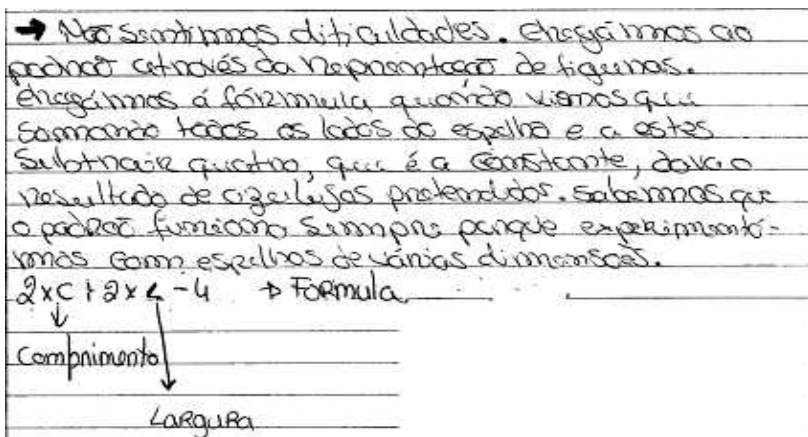 → Não sentimos dificuldades. Chegámos ao
padrão através da representação de figuras.
Chegámos á fórmula quando vimos que
somando todos os lados do espelho e a estes
subtrair quatro, que é a constante, dava o
resultado de azulejos pretendidos. Sabemos que
o padrão funciona sempre porque experimentá-
mos com espelhos de várias dimensões.
2xC + 2xL - 4 → Formula
Comprimento
Largura